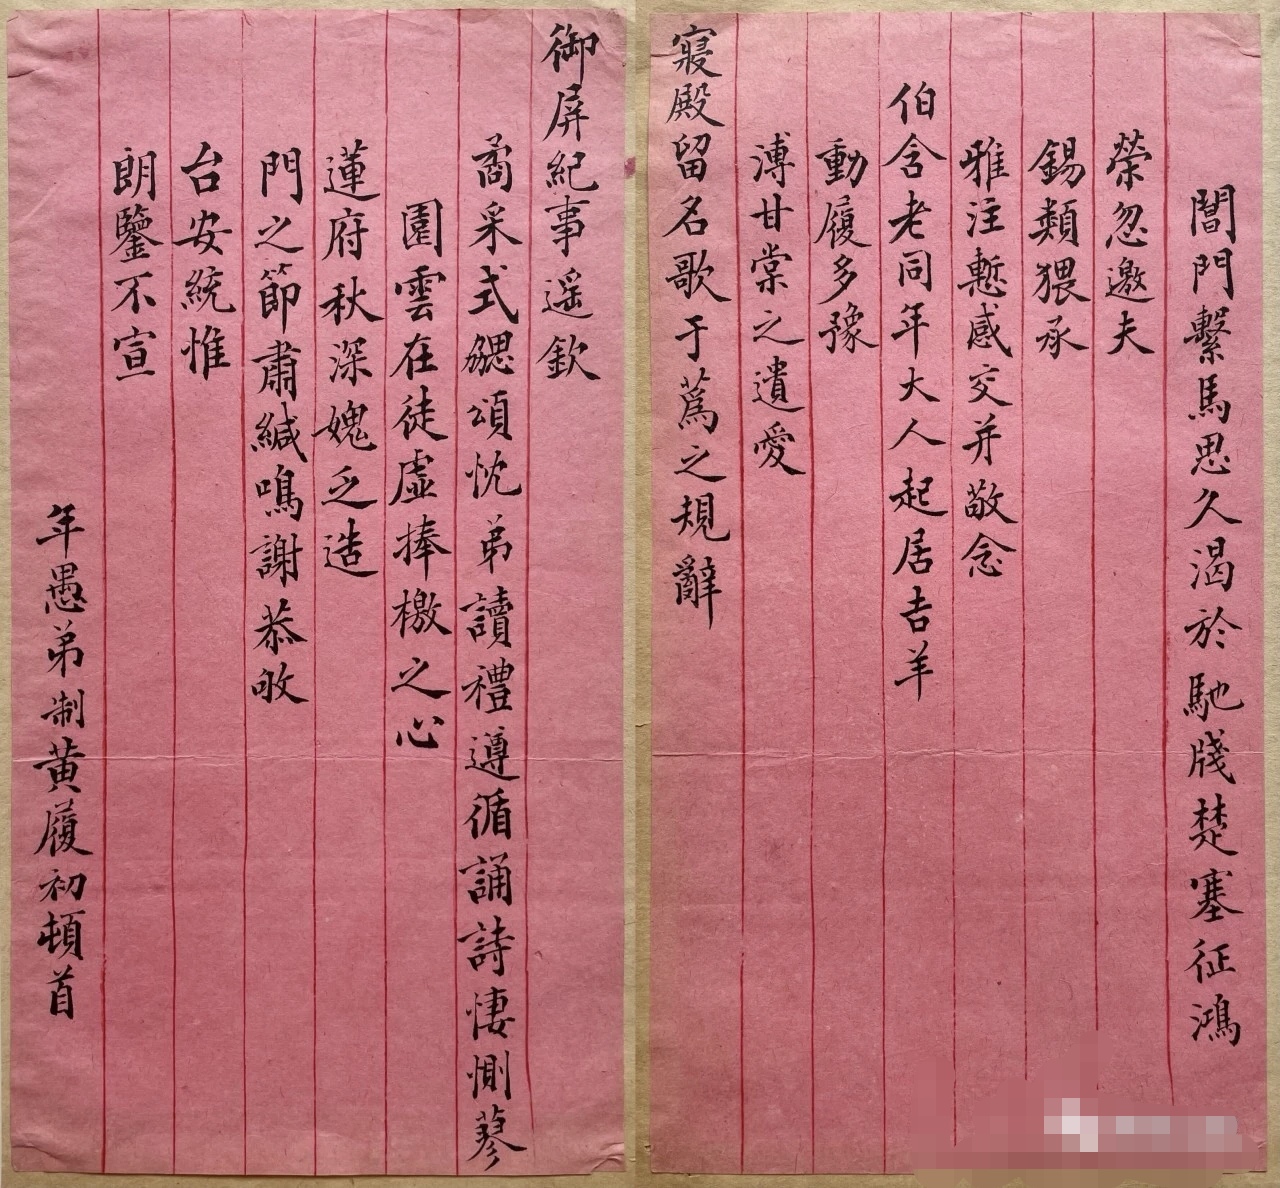 閶門繫馬思久渴於馳牋楚塞征鴻
榮忽邀夫
錫類猥承
雅注慙感交并敬念
伯含老同年大人起居吉羊
動履多豫
溥甘棠之遺愛
寢殿留名歌于蒍之規辭
御屏紀事遥欽
矞采式勰頌忱弟讀禮遵循誦詩悽惻蓼
園雲在徒虛捧檄之心
蓮府秋深媿乏造
門之節肅緘鳴謝恭敂
台安統惟
朗鑒不宣
年愚弟制黄履初頓首